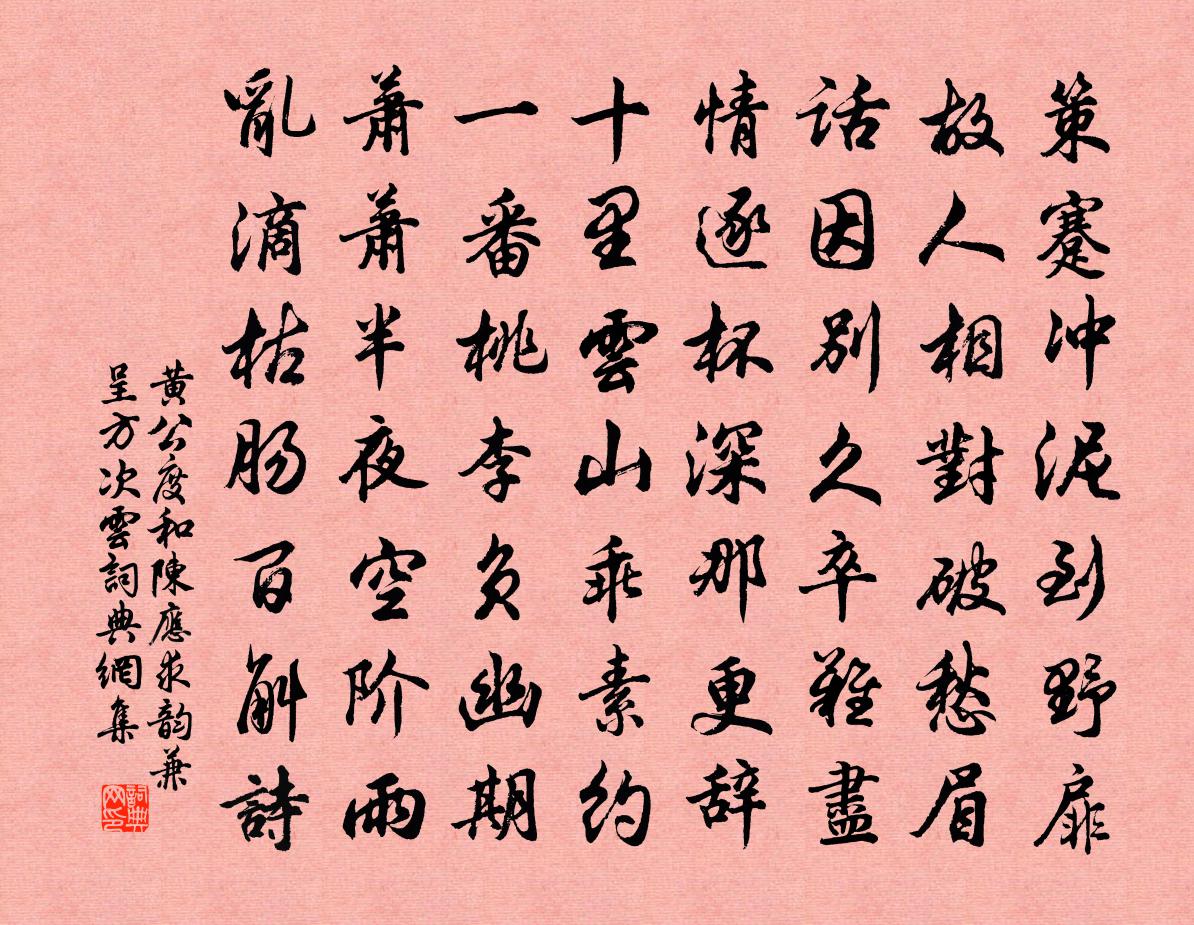 策蹇冲泥到野扉
故人相對破愁眉
話因別久卒難盡
情逐杯深那更辞
十里雲山乖素約
一番桃李負幽期
蕭蕭半夜空阶雨
亂滴枯肠百斛詩
黄公度和陳應求韵兼
呈方次雲詞典網集
詞典
网印